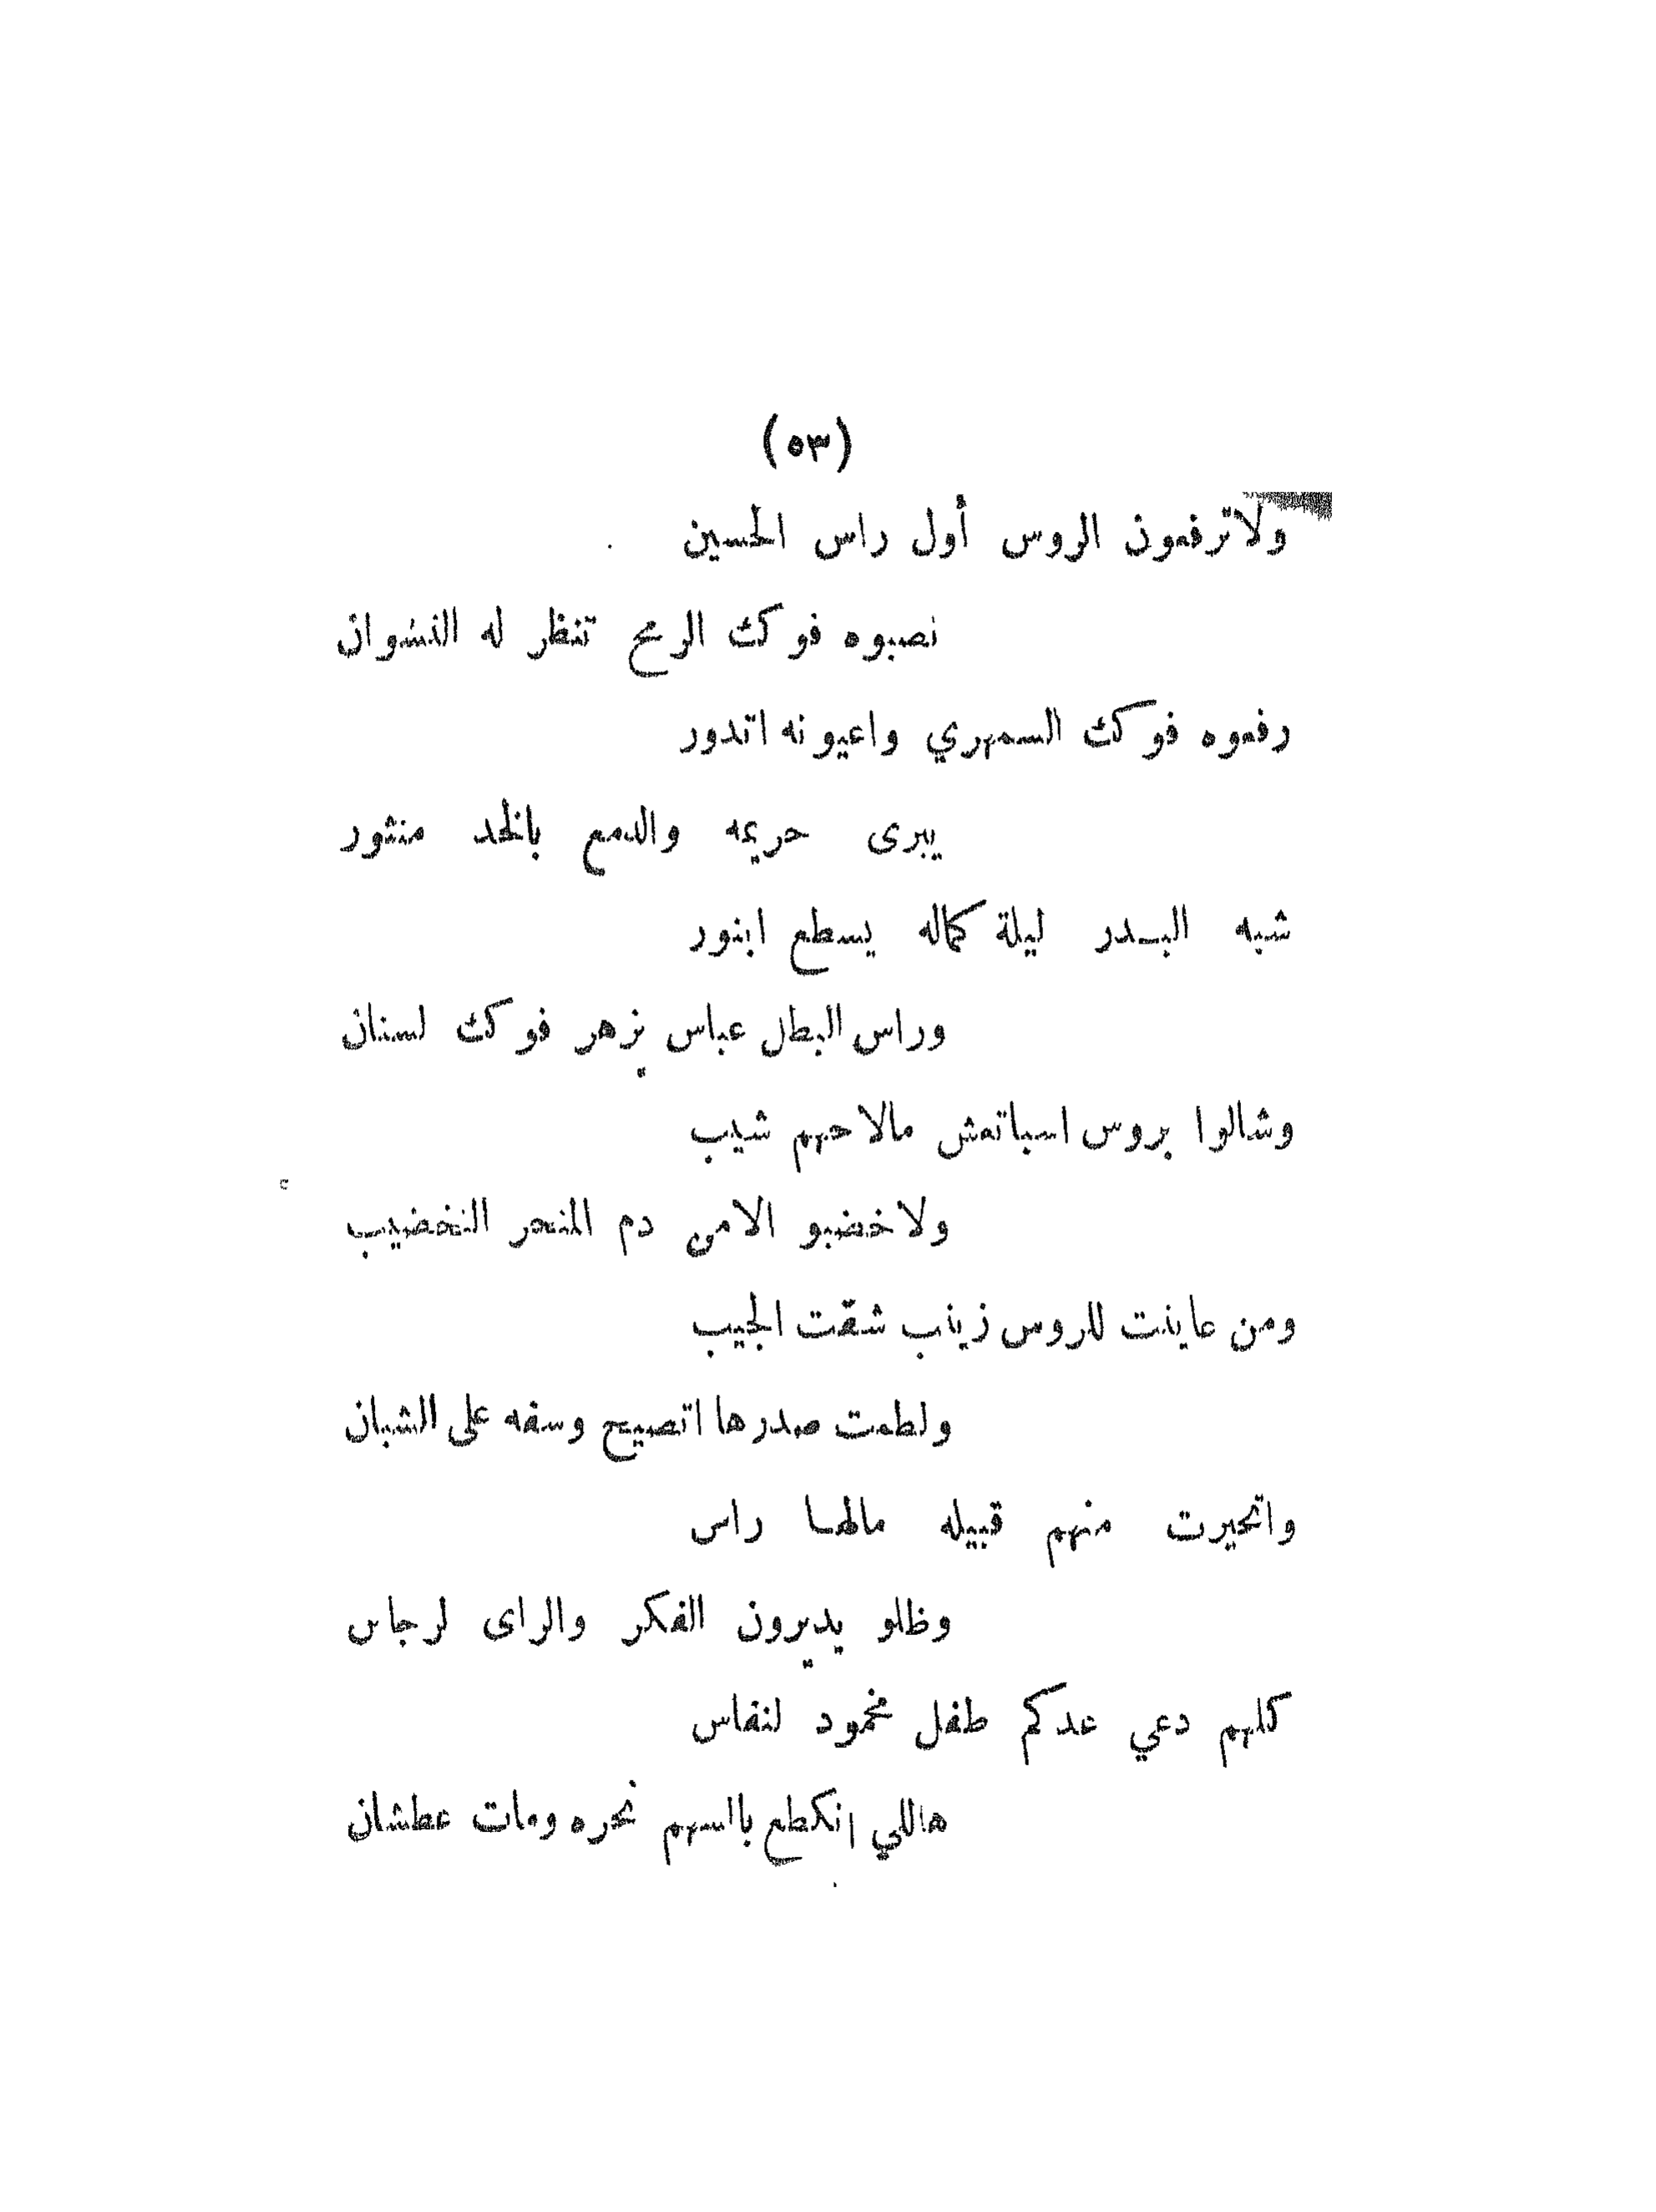 (٥٣)
ولاترفعون الروس أول راس الحسين
نصبوه فوك الرمح تنظر له النسوان
رفعوه فوك السمهري واعيونه اتدور
يبرى حريمه والدمع بالخد منثور
شبه البدر ليلة كماله يسطع ابنور
وراس البطل عباس يزهر فوك لسنان
وشالوا بروس اسباتعش مالاحهم شيب
ولاخضبو الامن دم المنحر التخضيب
ومن عاينت للروس زينب شقّت الجيب
ولطمت صدرها اتصيح وسفه على الشبان
واتحيرت منهم قبيله مالها راس
وظلو يديرون الفكر والراى لرجاس
كلهم دعي عدكم طفل مخمود لنفاس
هاللي انكطع باالسهم نحره ومات عطشان